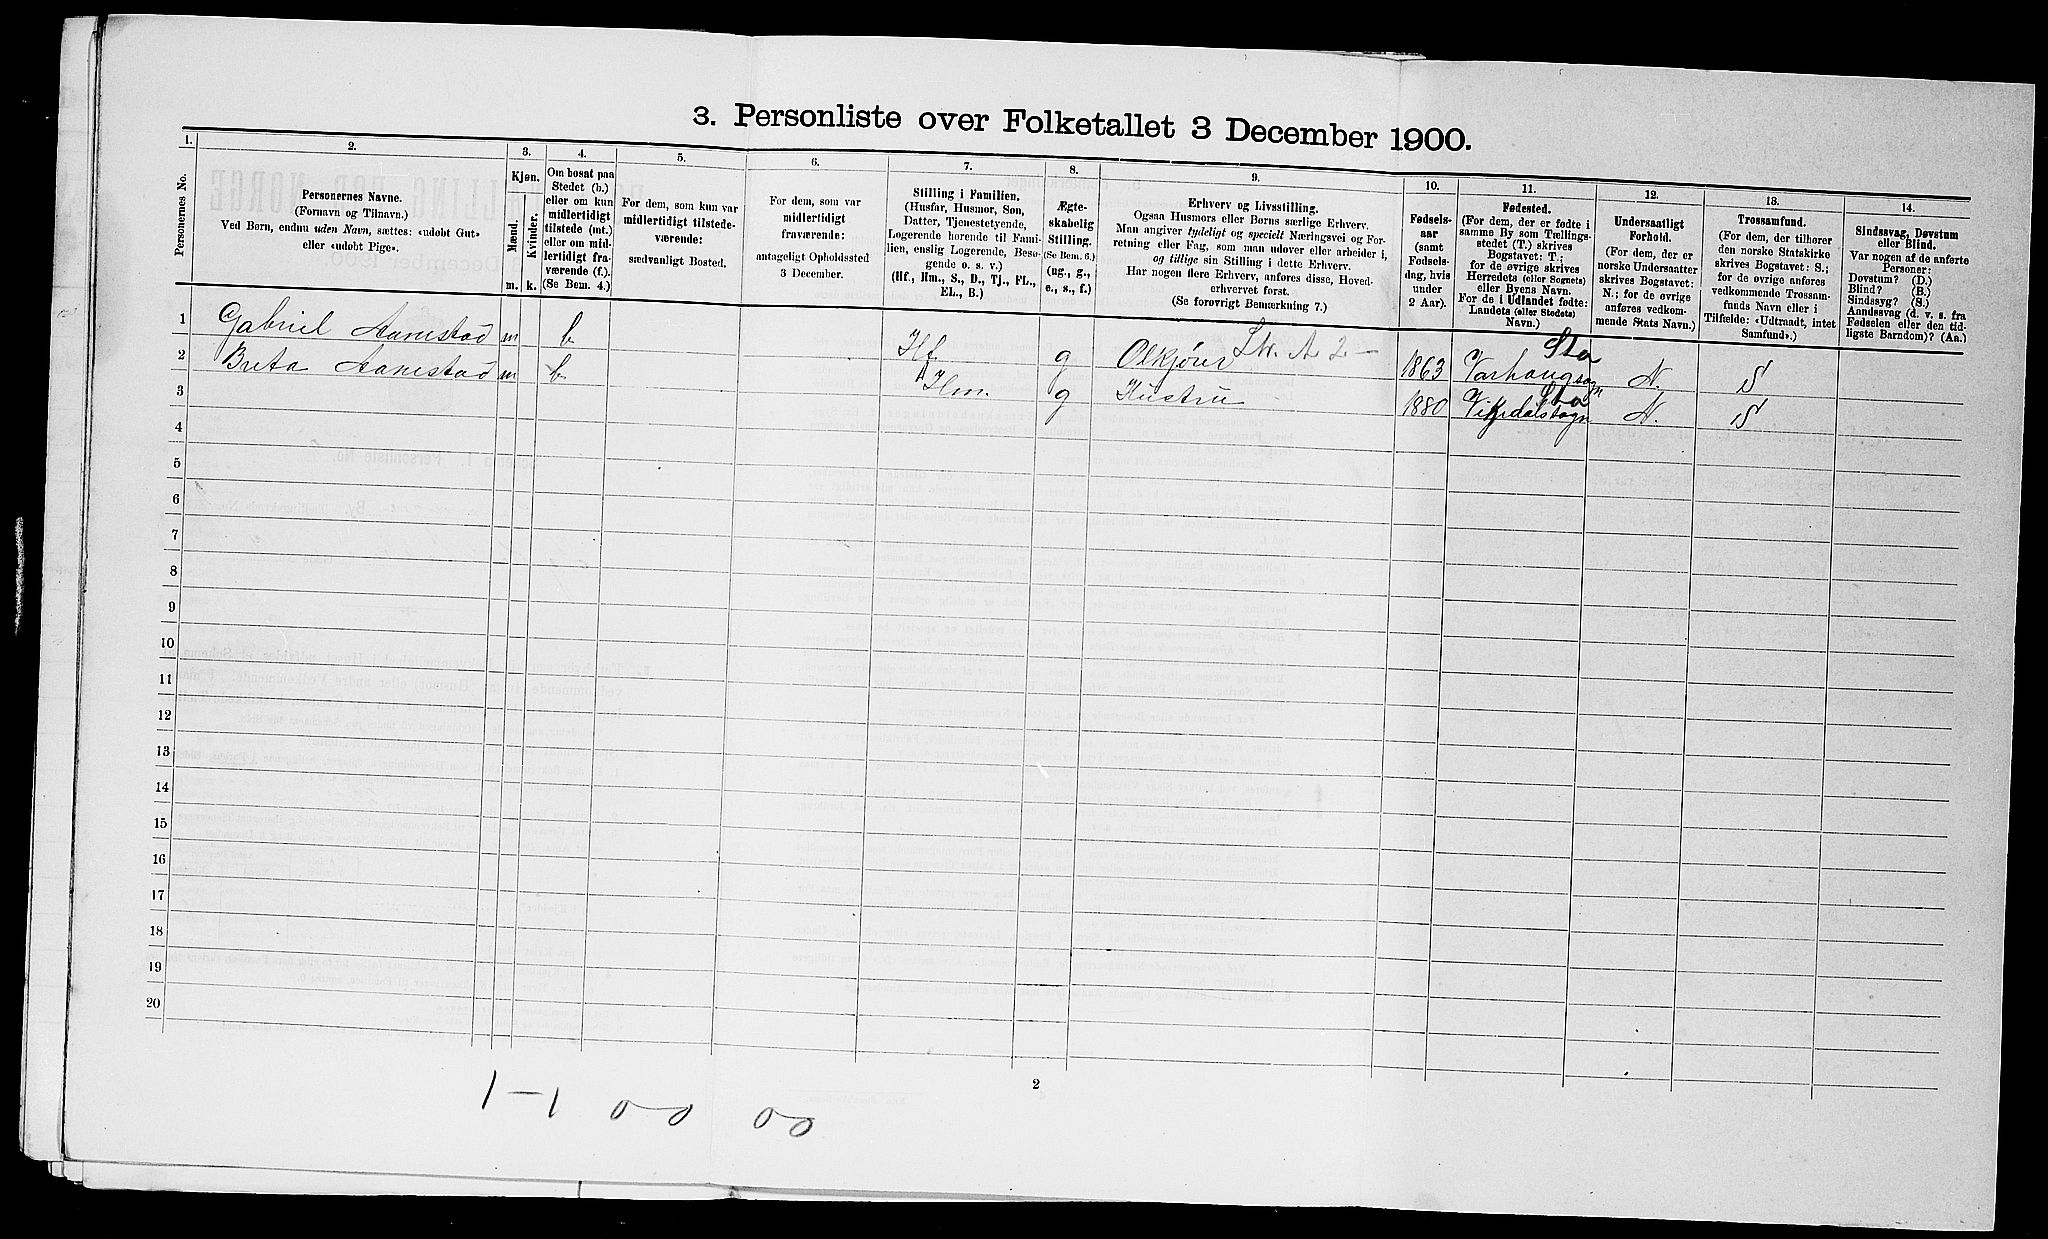 3. Personliste over Folketallet 3 December 1900.
1. 2. 3. 4. 5. 6. 7. 8. 9. 10. 11. 12. 13. 14.
Personernes No.
Personernes Navne.
(Fornavn og Tilnavn.)
Ved Børn, endnu uden Navn, sættes: «udøbt Gut»
eller «udøbt Pige».
Kjøn.
Mænd.
Kvinder.
m. k.
Om bosat paa
Stedet (b.)
eller om kun
midlertidigt
tilstede (mt.)
eller om mid-
lertidigt fra-
værende (f.).
(Se Bem. 4.)
For dem, som kun var
midlertidigt tilstede-
værende:
sædvanligt Bosted.
For dem, som var
midlertidigt
fraværende:
antageligt Opholdssted
3 December.
Stilling i Familien.
(Husfar, Husmor, Søn,
Datter, Tjenestetyende,
Logerende hørende til Fami-
lien, enslig Logerende, Besø-
gende o. s. v.)
(Hf., Hm., S., D., Tj., FL.,
EL., B.)
Ægte-
skabelig
Stilling.
(Se Bem. 6.)
(ug., g.,
e., s., f.)
Erhverv og Livsstilling.
Ogsaa Husmors eller Børns særlige Erhverv.
Man angiver tydeligt og specielt Næringsvei og For-
retning eller Fag, som man udøver eller arbeider i,
og tillige sin Stilling i dette Erhverv.
Har nogen flere Erhverv, anføres disse, Hoved-
erhvervet først.
(Se forøvrigt Bemærkning 7.)
Fødsels-
aar
(samt
Fødsels-
dag, hvis
under
2 Aar).
Fødested.
(For dem, der er fødte i
samme By som Tællings-
stedet (T.) skrives
Bogstavet: T.;
for de øvrige skrives
Herredets (eller Sognets)
eller Byens Navn.
For de i Udlandet fødte:
Landets (eller Stedets)
Navn.)
Undersaatligt
Forhold.
(For dem, der er
norske Undersaatter
skrives Bogstavet:
N.; for de øvrige
anføres vedkom-
mende Stats Navn.)
Trossamfund.
(For dem, der tilhører
den norske Statskirke
skrives Bogstavet: S.;
for de øvrige anføres
vedkommende Trossam-
funds Navn eller i
Tilfælde: «Udtraadt, intet
Samfund».)
Sindssvag, Døvstum
eller Blind.
Var nogen af de anførte
Personer:
Døvstum? (D.)
Blind? (B.)
Sindssyg? (S.)
Aandssvag (d. v. s. fra
Fødselen eller den tid-
ligste Barndom)? (Aa.)
1 Gabriel Aanestad m b Hf g Olkjører 1863 Varhaugsogn Sta N. S
2 Breta Aanestad m b Hm. g Hustru 1880 Vikedalsogn Sta N. S
3
4
5
6
7
8
9
10
11
12
13
14
15
16
17
18
19
20
2
1-1 0 0 0 0